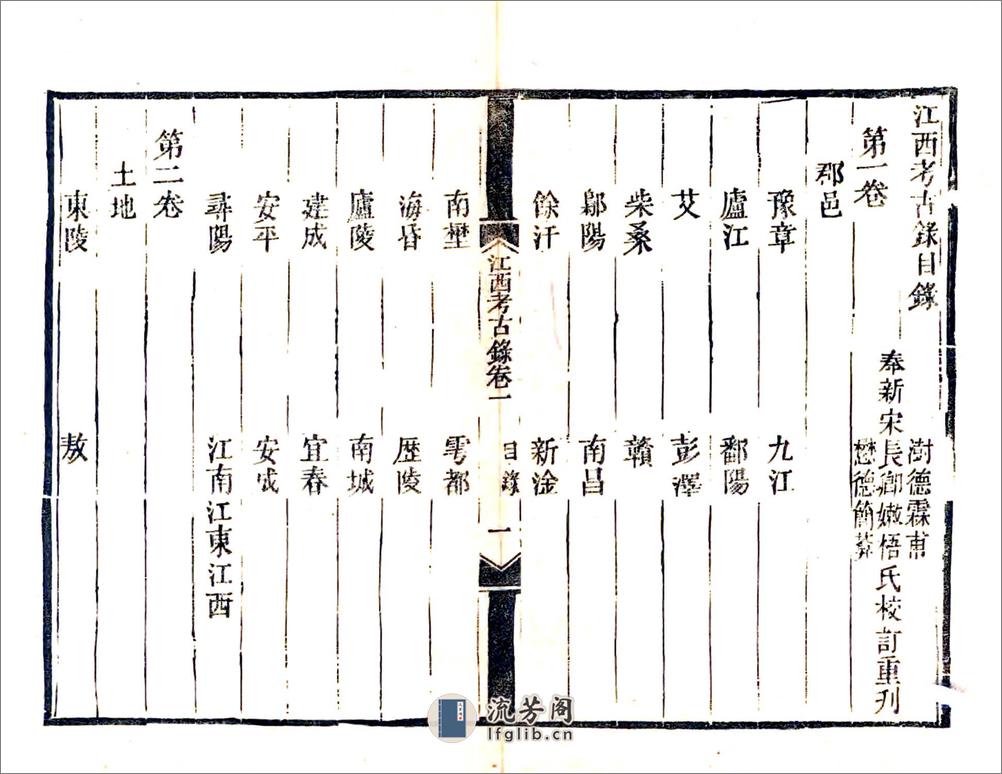 江西考古錄目錄
澍德霖甫
奉新宋長卿嫩梧氏校訂重刋
懋德簡
第一卷
郡邑
豫章 九江
廬江 鄱陽
艾 彭澤
柴桑 贛
鄡陽 南昌
餘汗 新淦
江西考古錄卷一 目錄 一
南壄 雩都
海昏 歷陵
廬陵 南城
建成 宜春
安平 安成
尋陽 江南江東江西
第二卷
土地
東陵 敖
流芳阁
lfglib.cn